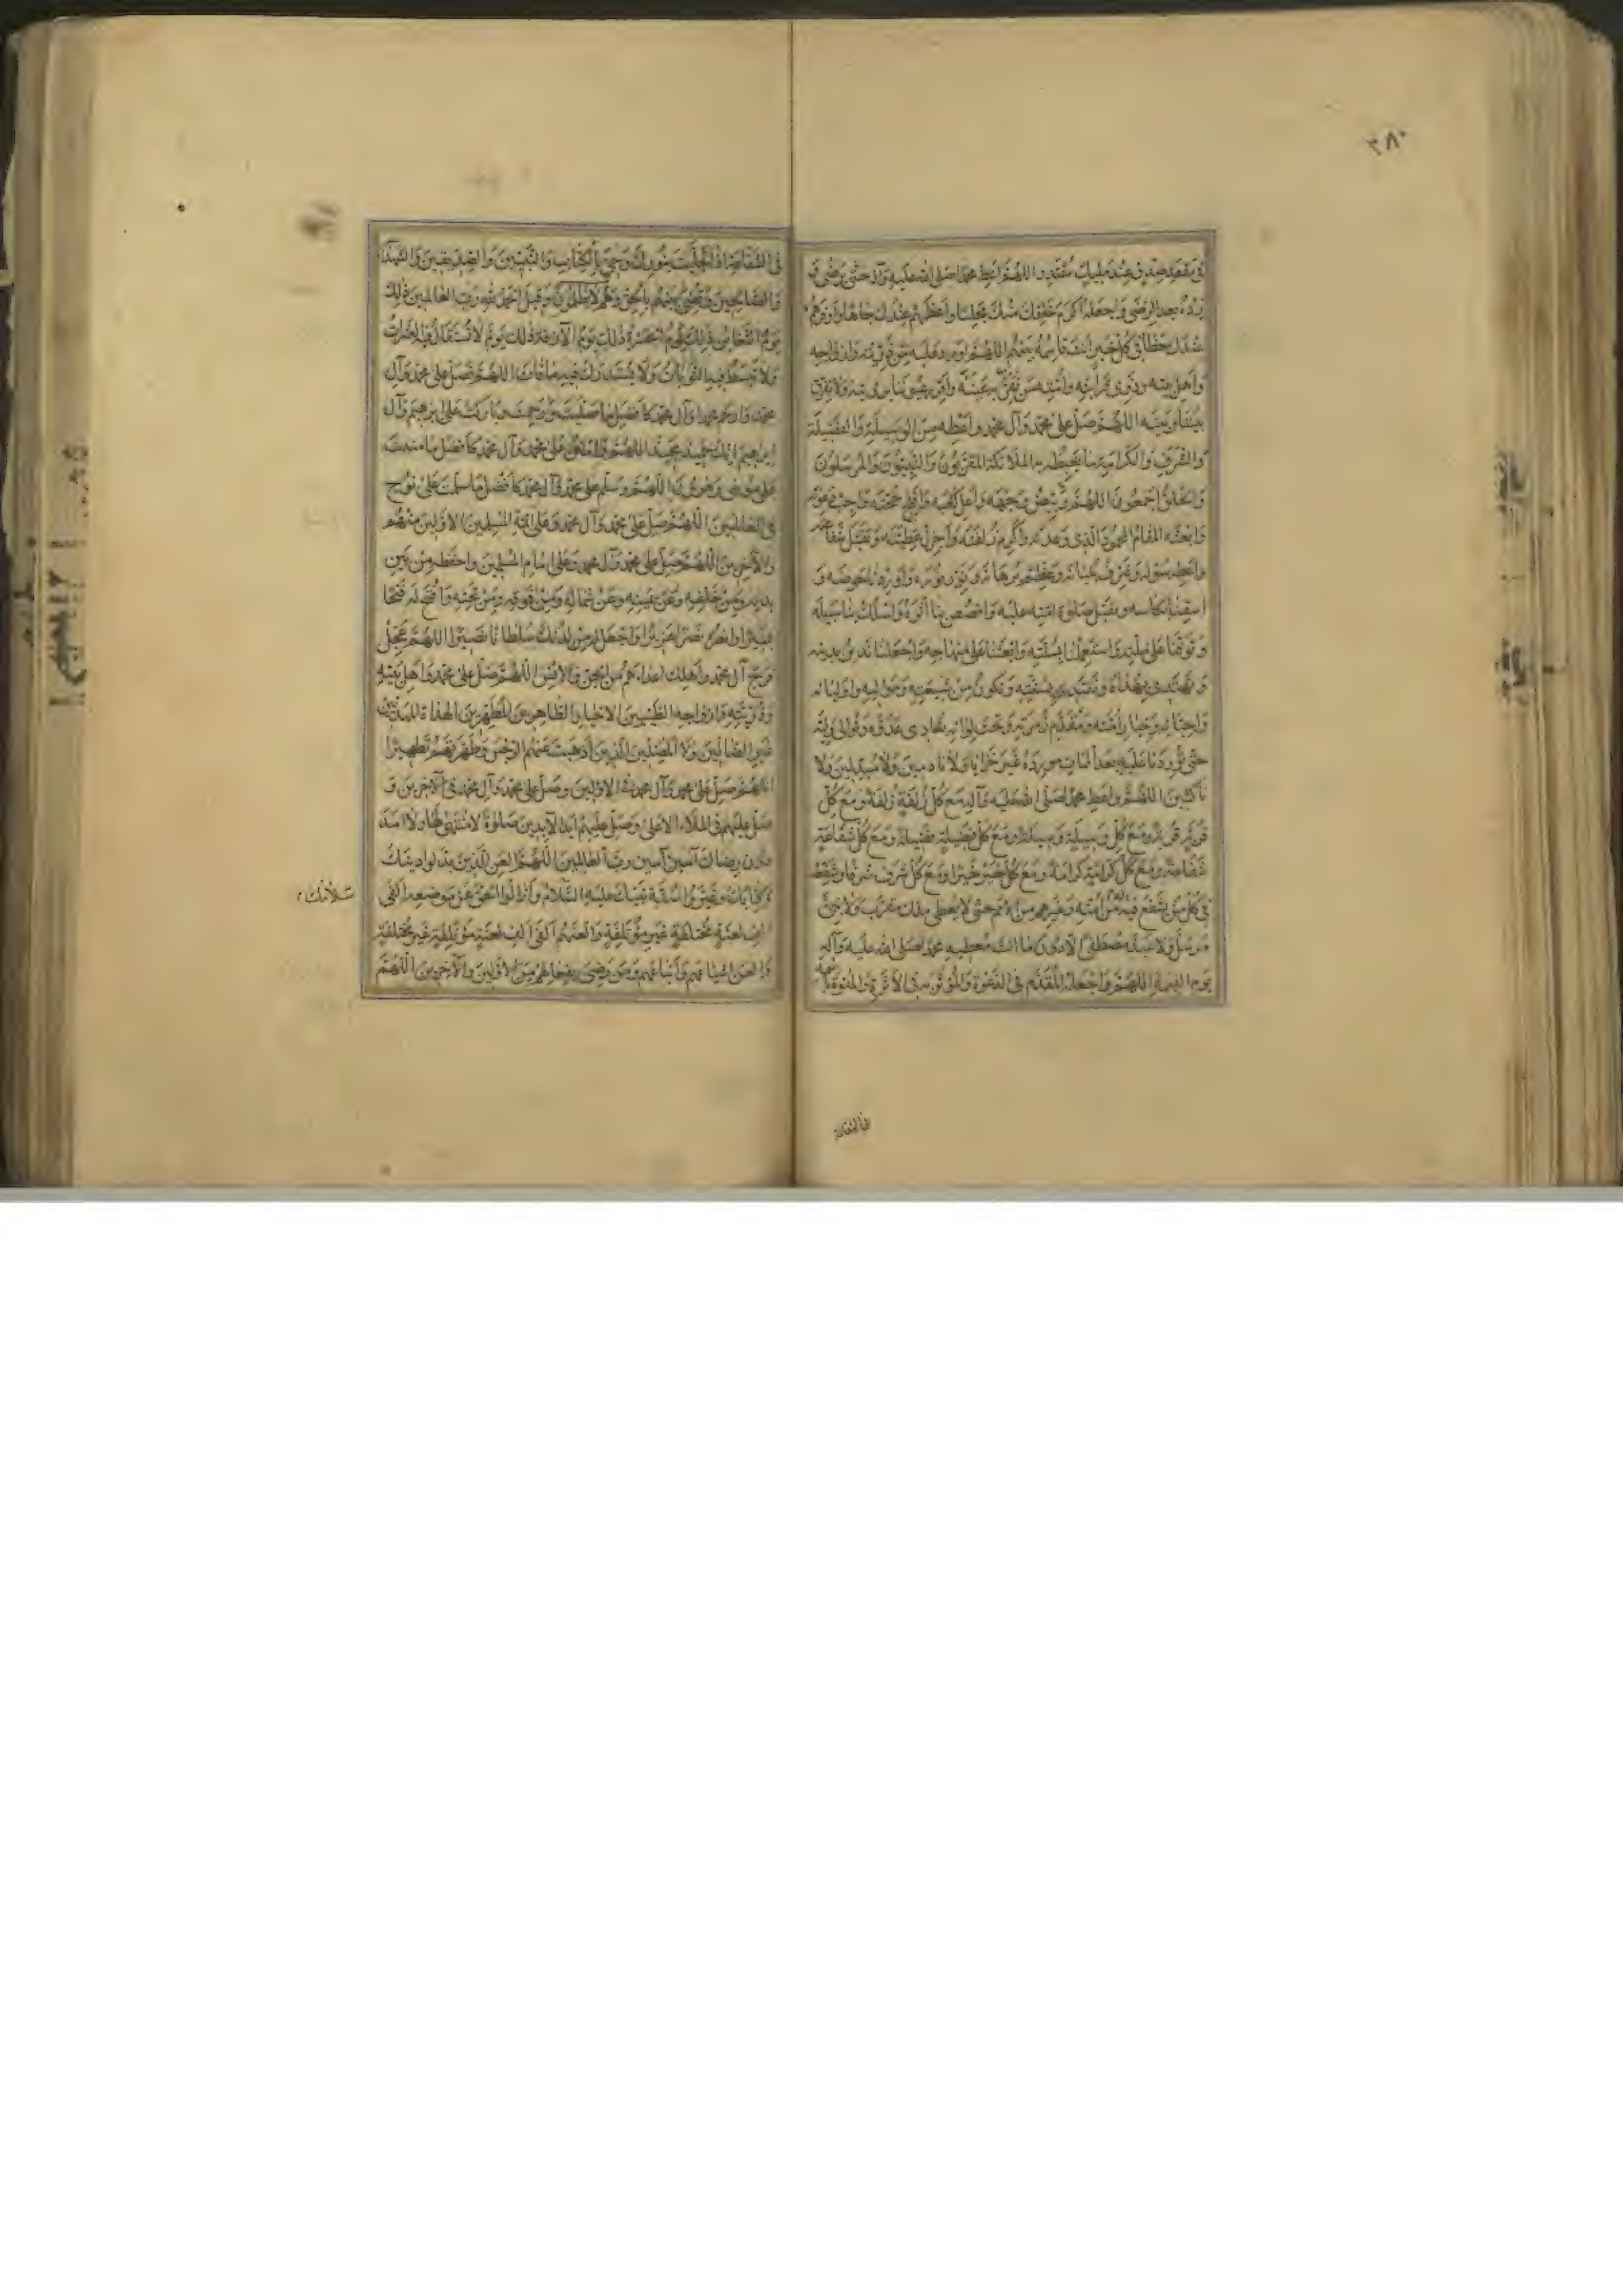 ٣٨٠
في مقعد صدق عند مليك مقتدر اللهم اعط محمدا صلى الله عليه وآله حتى يرضى و
زده بعد الرضى واجعله اكرم خلقك منك مجلسا واعظمهم عندك جاها واوفرهم
عندك حظا في كل خير انت قاسمه بينهم اللهم اورد عليه من ذريته وازواجه
واهل بيته وذوي قرابته وامته من تقر به عينه واقرر عيوننا برؤيته ولا تفرق
بيننا وبينه اللهم صل على محمد وآل محمد واعطه من الوسيلة والفضيلة
والشرف والكرامة ما يغبطه به الملائكة المقربون والنبيون والمرسلون
والخلق اجمعون اللهم وبيض وجهه واعل كعبه وافلج حجته واجب دعوته
وابعثه المقام المحمود الذي وعدته واكرم زلفته واجزل عطيته وتقبل شفاعته
واعطه سؤله وشرف بنيانه وعظم برهانه ونور نوره واوردنا حوضه و
اسقنا بكاسه وتقبل صلوة امته عليه واقصص بنا اثره واسلك بنا سبيله
وتوفنا على ملته واستعملنا بسنته وابعثنا على منهاجه واجعلنا ندين بدينه
ونهتدي بهداه ونقتدي بسنته ونكون من شيعته ومواليه واوليائه
واحبائه وخيار امته ومقدم زمرته وتحت لوائه نعادي عدوه ونوالي وليه
حتى توردنا عليه بعد الممات مورده غير خزايا ولا نادمين ولا مبدلين ولا
ناكثين اللهم واعط محمدا صلى الله عليه وآله مع كل زلفة زلفة ومع كل
قربة قربة ومع كل وسيلة وسيلة ومع كل فضيلة فضيلة ومع كل شفاعة
شفاعة ومع كل كرامة كرامة ومع كل خير خيرا ومع كل شرف شرفا وشفعه
في كل من يشفع فيه من امته وغيرهم من الامم حتى لا يعطى ملك مقرب ولا نبي
مرسل ولا عبد مصطفى الا دون ما انت معطيه محمدا صلى الله عليه وآله
يوم القيمة اللهم واجعله المقدم في الدعوة والمؤثر به في الاثرة والمنوه باسمه
في الشفاعة اذا تجليت بنورك وجيء بالكتاب والنبيين والصديقين والشهداء
والصالحين وقضي بينهم بالحق وهم لا يظلمون وقيل الحمد لله رب العالمين ذلك
يوم التغابن ذلك يوم الحسرة ذلك يوم الآزفة ذلك يوم لا تستقال فيه العثرات
ولا تبسط فيه التوبات ولا يستدرك فيه ما فات اللهم فصل على محمد وآل
محمد وارحم محمدا وآل محمد كافضل ما صليت ورحمت وباركت على ابرهيم وآل
ابراهيم انك حميد مجيد اللهم وامنن على محمد وآل محمد كافضل ما مننت
على موسى وهرون اللهم وسلم على محمد وآل محمد كافضل ما سلمت على نوح
في العالمين اللهم صل على محمد وآل محمد وعلى ائمة المسلمين الاولين منهم
والآخرين اللهم صل على محمد وآل محمد وعلى امام المسلمين واحفظه من بين
يديه ومن خلفه وعن يمينه وعن شماله ومن فوقه ومن تحته وافتح له فتحا
يسيرا وانصره نصرا عزيزا واجعل له من لدنك سلطانا نصيرا اللهم عجل
فرج آل محمد واهلك اعداءهم من الجن والانس اللهم صل على محمد واهل بيته
وذريته وازواجه الطيبين الاخيار الطاهرين المطهرين الهداة المهديين
غير الضالين ولا المضلين الذين اذهبت عنهم الرجس وطهرتهم تطهيرا
اللهم صل على محمد وآل محمد في الاولين وصل على محمد وآل محمد في الآخرين و
صل عليهم في الملاء الاعلى وصل عليهم ابد الآبدين صلوة لا منتهى لها ولا امد
دون رضاك آمين آمين رب العالمين اللهم العن الذين بدلوا دينك
وكتابك وغيروا سنة نبيك عليه السلام وازالوا الحق عن موضعه الفي
الف لعنة مختلفة غير مؤتلفة والعنهم الفي الف لعنة مؤتلفة غير مختلفة
والعن اشياعهم واتباعهم ومن رضي بفعالهم من الاولين والآخرين اللهم